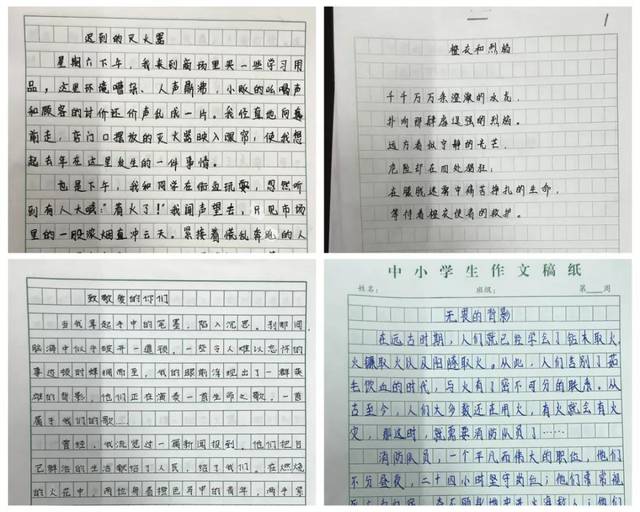 迟到的灭火器
星期六下午，我来到商场里买一些学习用
品，这里环境嘈杂、人声鼎沸，小贩的吆喝声
和顾客的讨价还价声乱成一片。我径直地向
前走，店门口摆放的灭火器映入眼帘，使我想
起去年在这里发生的一件事情。
也是下午，我和同学在街上玩耍，忽然听
到有人大喊："着火了！"我闻声望去，只见市场
里的一股浓烟直冲云天。紧接着慌乱奔跑的人
橙衣和烈焰
1
千千万万条澄澈的水流，
扑向那肆虐逞强的烈焰。
远方看似宁静的光芒，
危险却在四处猖狂；
在朦胧迷雾中痛苦挣扎的生命，
等待着橙衣使者的救护。
致敬爱的你们
当我拿起手中的笔墨，陷入沉思。刹那间，
脑海中似乎破开一道锁，一些令人难以忘怀的
事迹顿时蜂拥而至，我的眼前浮现出了一群英
雄的背影，他们正在演奏一首生命之歌，一首
属于我们的歌……
曾经，我浏览过一篇新闻报到。他们把自
己鲜活的生活献给了人民，给了我们。在燃烧
的火花中，两位身着橙色
中的青年，两手紧
中小学生作文稿纸
姓名：
班级：
第 周
无畏的背影
在远古时期，人们就已经学会了钻木取火，
火镰取火以及阳燧取火。从此，人们告别了茹
毛饮血的时代，与火有了密不可分的联系。从
古至今，人们大多数还在用火，有火就会有火
灾，那这时，就需要消防队员了……
消防队员，一个平凡而伟大的职位，他们
不分昼夜，二十四小时坚守岗位；他们常常视